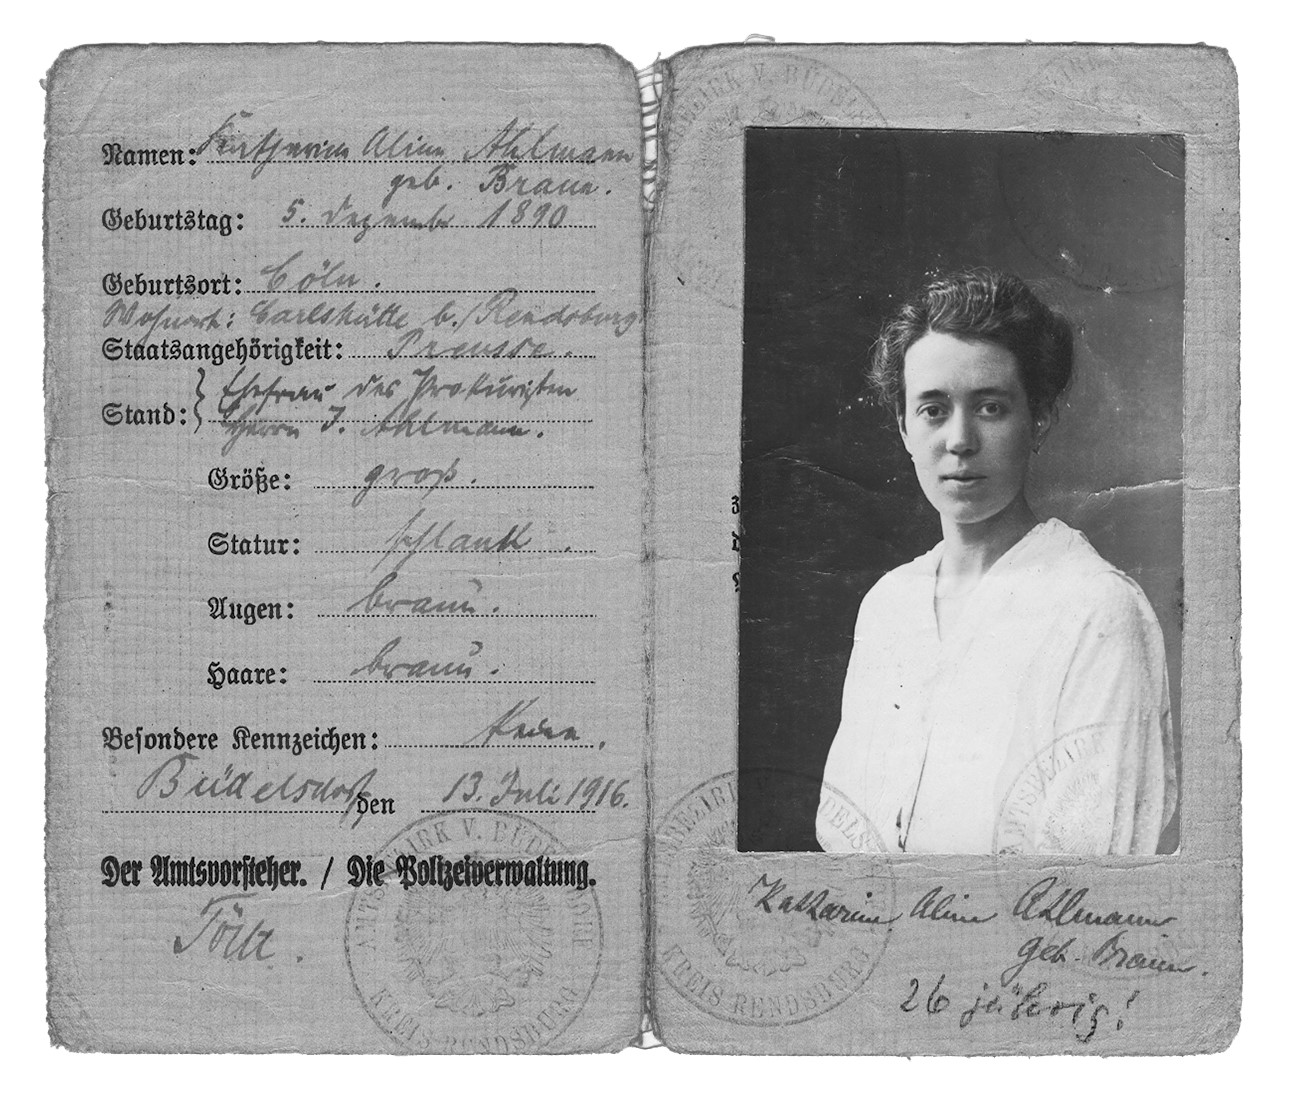 Namen: Katharina Aline Ahlmann
geb. Braun.
Geburtstag: 5. Dezember 1890
Geburtsort: Cöln.
Wohnort: Carlshütte b./Rendsburg
Staatsangehörigkeit: Preusse.
Stand: Ehefrau des Prokuristen
Herrn J. Ahlmann.
Größe: groß.
Statur: schlank.
Augen: braun.
Haare: braun.
Besondere Kennzeichen: Keine.
Büdelsdorf den 13. Juli 1916.
Der Amtsvorsteher. / Die Polizeiverwaltung.
AMTSBEZIRK V. BÜDELSDORF
KREIS RENDSBURG
AMTSBEZIRK V. BÜDELSDORF
KREIS RENDSBURG
AMTSBEZIRK
BEZIRK V. BÜDELS
Katharina Aline Ahlmann
geb. Braun.
26 jährig!